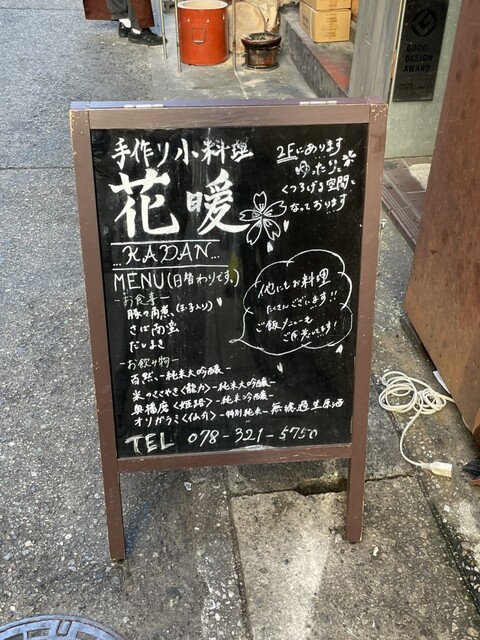 手作り小料理
花暖
KADAN
2Fにあります
ゆったりと
くつろげる空間と
なっております
MENU(日替わりです。)
お食事
豚の角煮(玉子入り)
さば南蛮
だしまき
他にもお料理
たくさんございます!!
ご飯メニューも
ご用意してます!
お飲み物
百然 - 純米大吟醸 -
米のささやき〈龍力〉- 純米大吟醸 -
奥播磨〈姫路〉- 純米吟醸 -
オリガラミ〈仙介〉- 特別純米 - 無濾過生原酒
TEL 078-321-5750
GOOD
DESIGN
AWARD